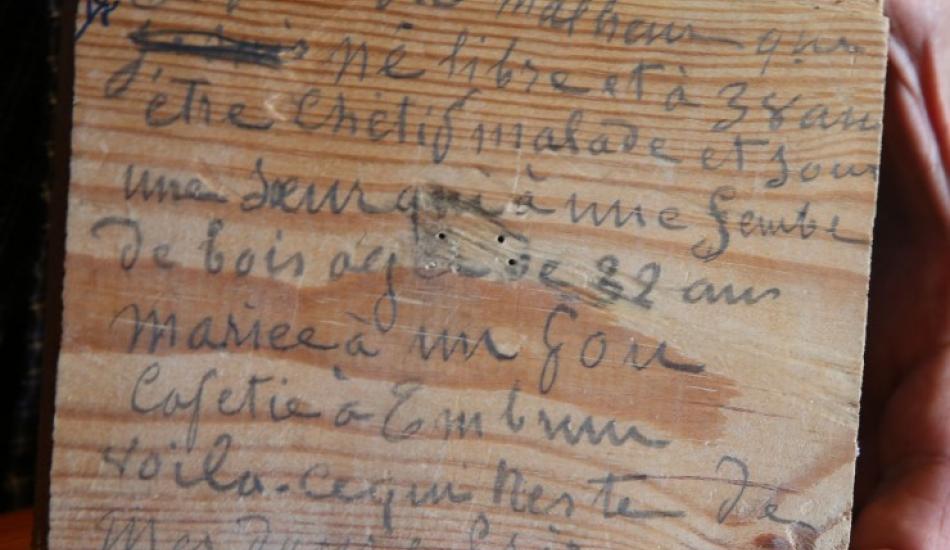 malheur que
né libre et à 38 ans
être chétif malade et sour
une sœur qui à une Jembe
de bois agée de 22 ans
mariee à un fou
Cafetie à Embrun
voila cequi Reste de